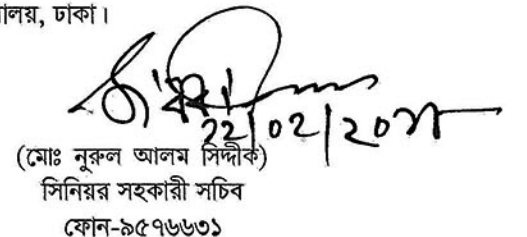 লয়, ঢাকা।
22/02/20
(মোঃ নুরুল আলম সিদ্দীক)
সিনিয়র সহকারী সচিব
ফোন-৯৫৭৬৬৩১